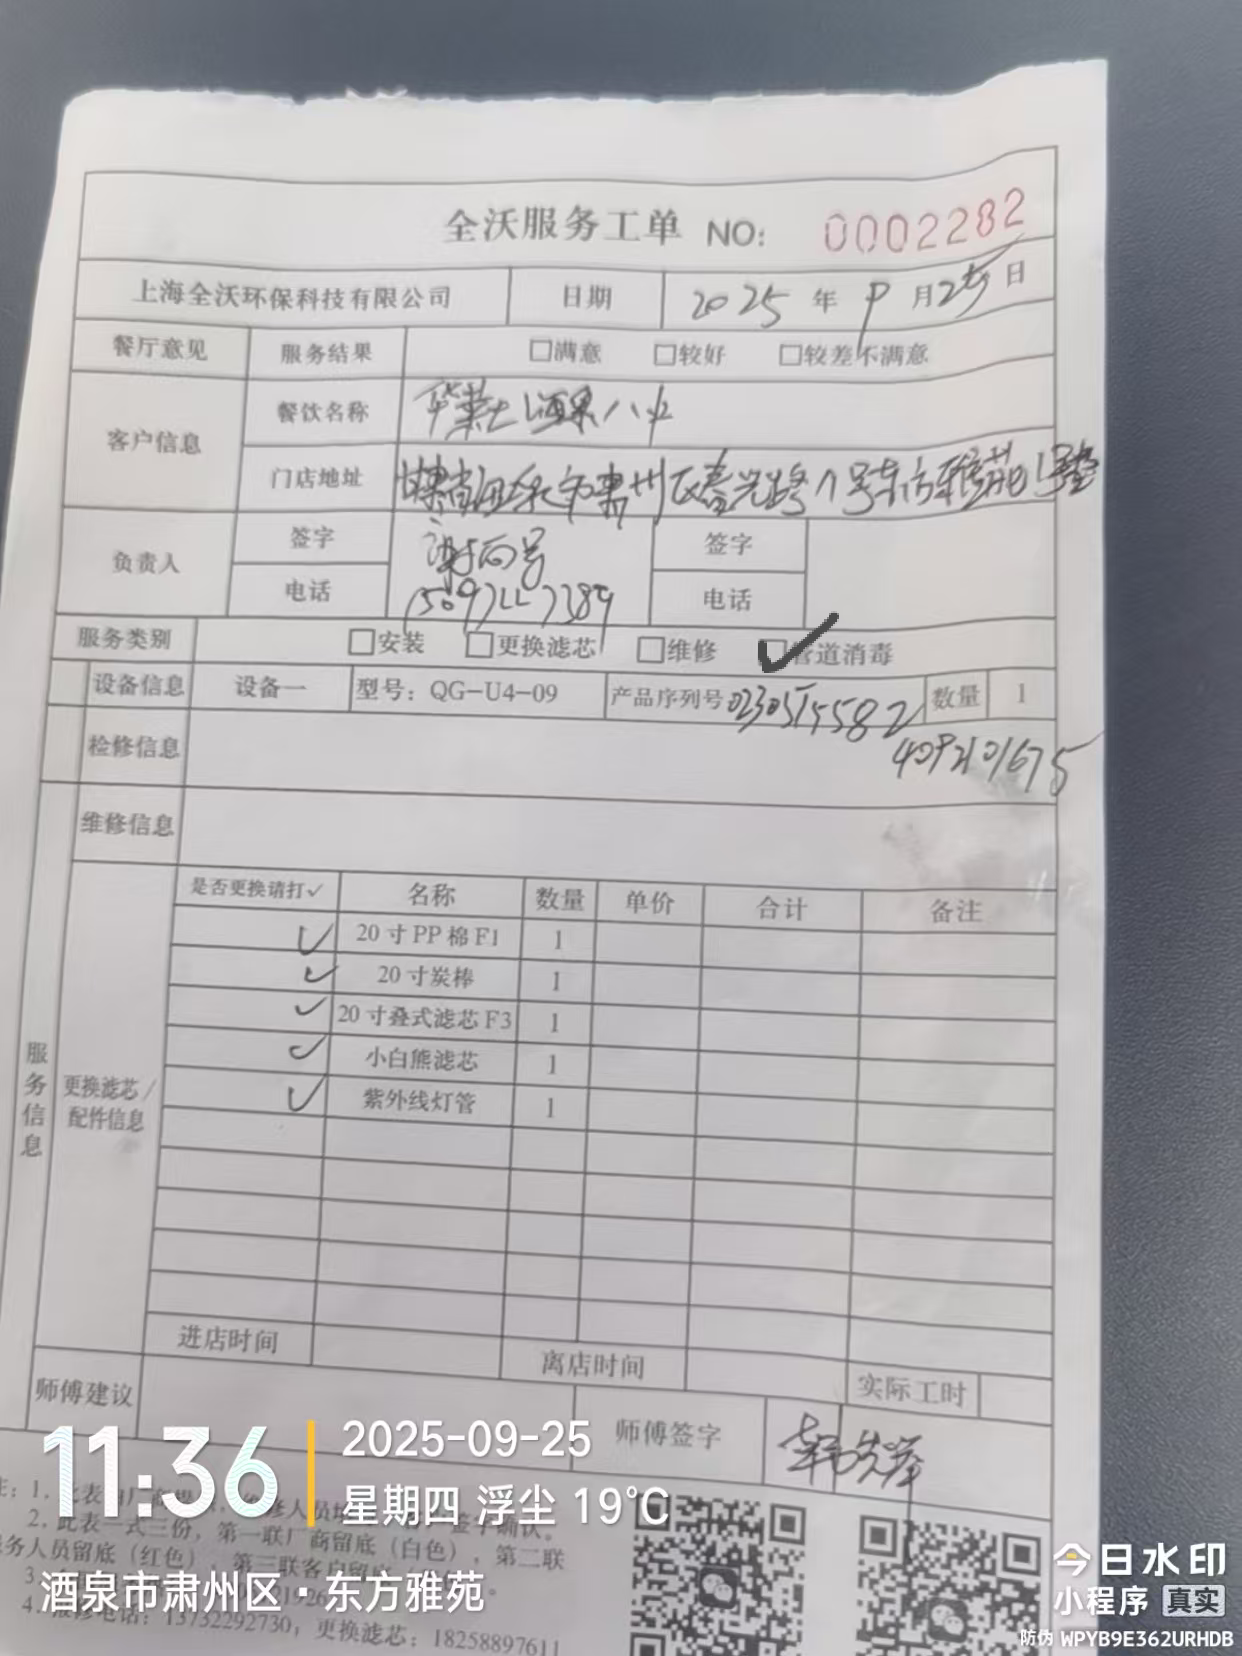 全沃服务工单 NO: 0002282
上海全沃环保科技有限公司 日期 2025 年 9 月 25 日
餐厅意见 服务结果 □满意 □较好 □较差不满意
客户信息 餐饮名称 华莱士酒泉八店
门店地址 甘肃省酒泉市肃州区春光路1号东方雅苑1号
负责人 签字 签字
电话 15097227389 电话
服务类别 □安装 □更换滤芯 □维修 ☑管道消毒
设备信息 设备一 型号：QG-U4-09 产品序列号 0230515582 数量 1
4092101675
检修信息
维修信息
是否更换请打✓ 名称 数量 单价 合计 备注
✓ 20寸PP棉F1 1
✓ 20寸炭棒 1
✓ 20寸叠式滤芯F3 1
✓ 小白熊滤芯 1
✓ 紫外线灯管 1
服务信息
更换滤芯/
配件信息
进店时间 离店时间 实际工时
师傅建议 师傅签字
11:36
2025-09-25
星期四 浮尘 19°C
2. 此表一式三份，第一联厂商留底（白色），第二联
务人员留底（红色），第三联客户留底
酒泉市肃州区·东方雅苑
13732292730，更换滤芯：18258897611
今日水印
小程序 真实
防伪 WPYB9E362URHDB